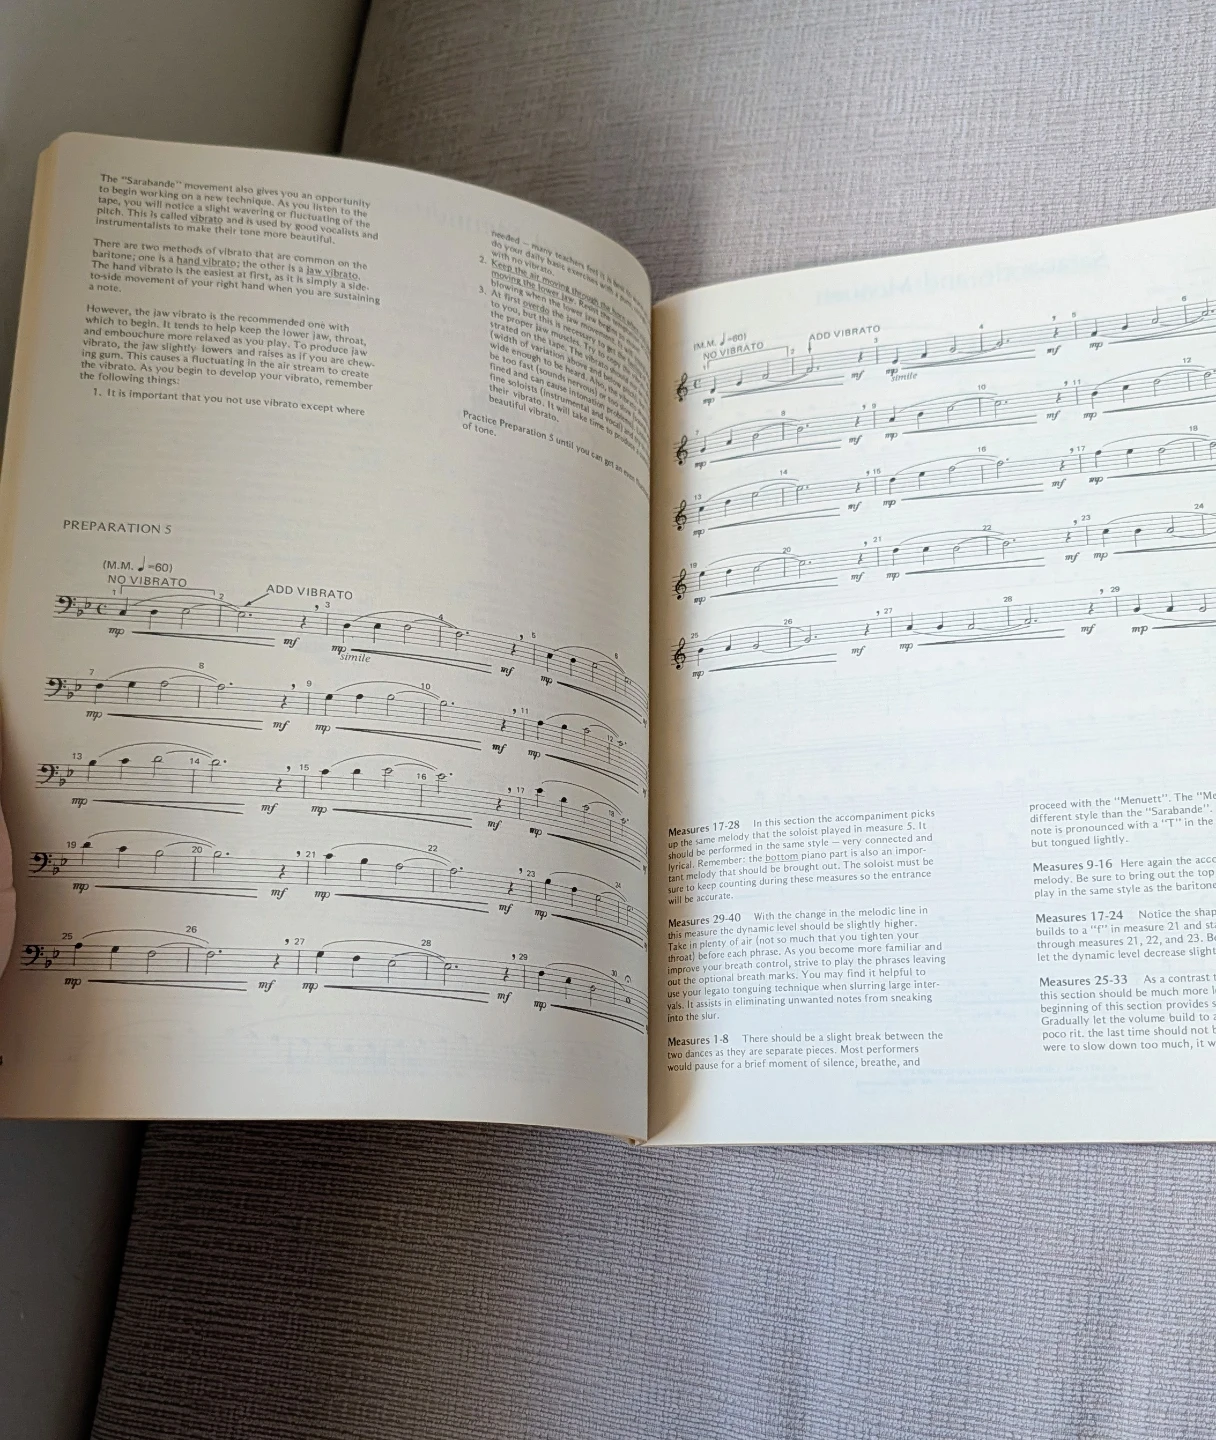 The "Sarabande" movement also gives you an opportunity
to begin working on a new technique. As you listen to the
tape, you will notice a slight wavering or fluctuating of the
pitch. This is called vibrato and is used by good vocalists and
instrumentalists to make their tone more beautiful.
There are two methods of vibrato that are common on the
baritone; one is a hand vibrato; the other is a jaw vibrato.
The hand vibrato is the easiest at first, as it is simply a side-
to-side movement of your right hand when you are sustaining
a note.
However, the jaw vibrato is the recommended one with
which to begin. It tends to help keep the lower jaw, throat,
and embouchure more relaxed as you play. To produce jaw
vibrato, the jaw slightly lowers and raises as if you are chew-
ing gum. This causes a fluctuating in the air stream to create
the vibrato. As you begin to develop your vibrato, remember
the following things:
1. It is important that you not use vibrato except where
needed — many teachers feel it is best to
do your daily basic exercises with a pure
with no vibrato.
2. Keep the air moving through the horn when
moving the lower jaw. Resist the
blowing when the lower jaw begins to
3. At first overdo the jaw movement. It may
to you, but this is necessary to get the
the proper jaw muscles. Try to copy the
strated on the tape. The vibrato should
(width of variation above and below
wide enough to be heard. Also, the vibrato
be too fast (sounds nervous) or too slow
fined and can cause intonation problems
fine soloists (instrumental and vocal) and
their vibrato. It will take time to produce a
beautiful vibrato.
Practice Preparation 5 until you can get an even
of tone.
PREPARATION 5
(M.M. ♩=60)
NO VIBRATO
ADD VIBRATO
1 2 3 4 5 6
mp mf mp mf mp
simile
7 8 9 10 11 12
mp mf mp mf mp
13 14 15 16 17 18
mp mf mp mf mp
19 20 21 22 23 24
mp mf mp mf mp
25 26 27 28 29 30
mp mf mp mf mp
(M.M. ♩=60)
NO VIBRATO
ADD VIBRATO
2 3 4 5 6
mp mf mp mf mp
simile
7 8 9 10 11 12
mp mf mp mf mp
13 14 15 16 17 18
mp mf mp mf mp
19 20 21 22 23 24
mp mf mp mf mp
25 26 27 28 29
mp mf mp mf mp
Measures 17-28 In this section the accompaniment picks
up the same melody that the soloist played in measure 5. It
should be performed in the same style — very connected and
lyrical. Remember: the bottom piano part is also an impor-
tant melody that should be brought out. The soloist must be
sure to keep counting during these measures so the entrance
will be accurate.
Measures 29-40 With the change in the melodic line in
this measure the dynamic level should be slightly higher.
Take in plenty of air (not so much that you tighten your
throat) before each phrase. As you become more familiar and
improve your breath control, strive to play the phrases leaving
out the optional breath marks. You may find it helpful to
use your legato tonguing technique when slurring large inter-
vals. It assists in eliminating unwanted notes from sneaking
into the slur.
Measures 1-8 There should be a slight break between the
two dances as they are separate pieces. Most performers
would pause for a brief moment of silence, breathe, and
proceed with the "Menuett". The "Me
different style than the "Sarabande".
note is pronounced with a "T" in the
but tongued lightly.
Measures 9-16 Here again the acco
melody. Be sure to bring out the top
play in the same style as the baritone
Measures 17-24 Notice the shap
builds to a "f" in measure 21 and sta
through measures 21, 22, and 23. Be
let the dynamic level decrease slight
Measures 25-33 As a contrast t
this section should be much more l
beginning of this section provides s
Gradually let the volume build to a
poco rit. the last time should not b
were to slow down too much, it w